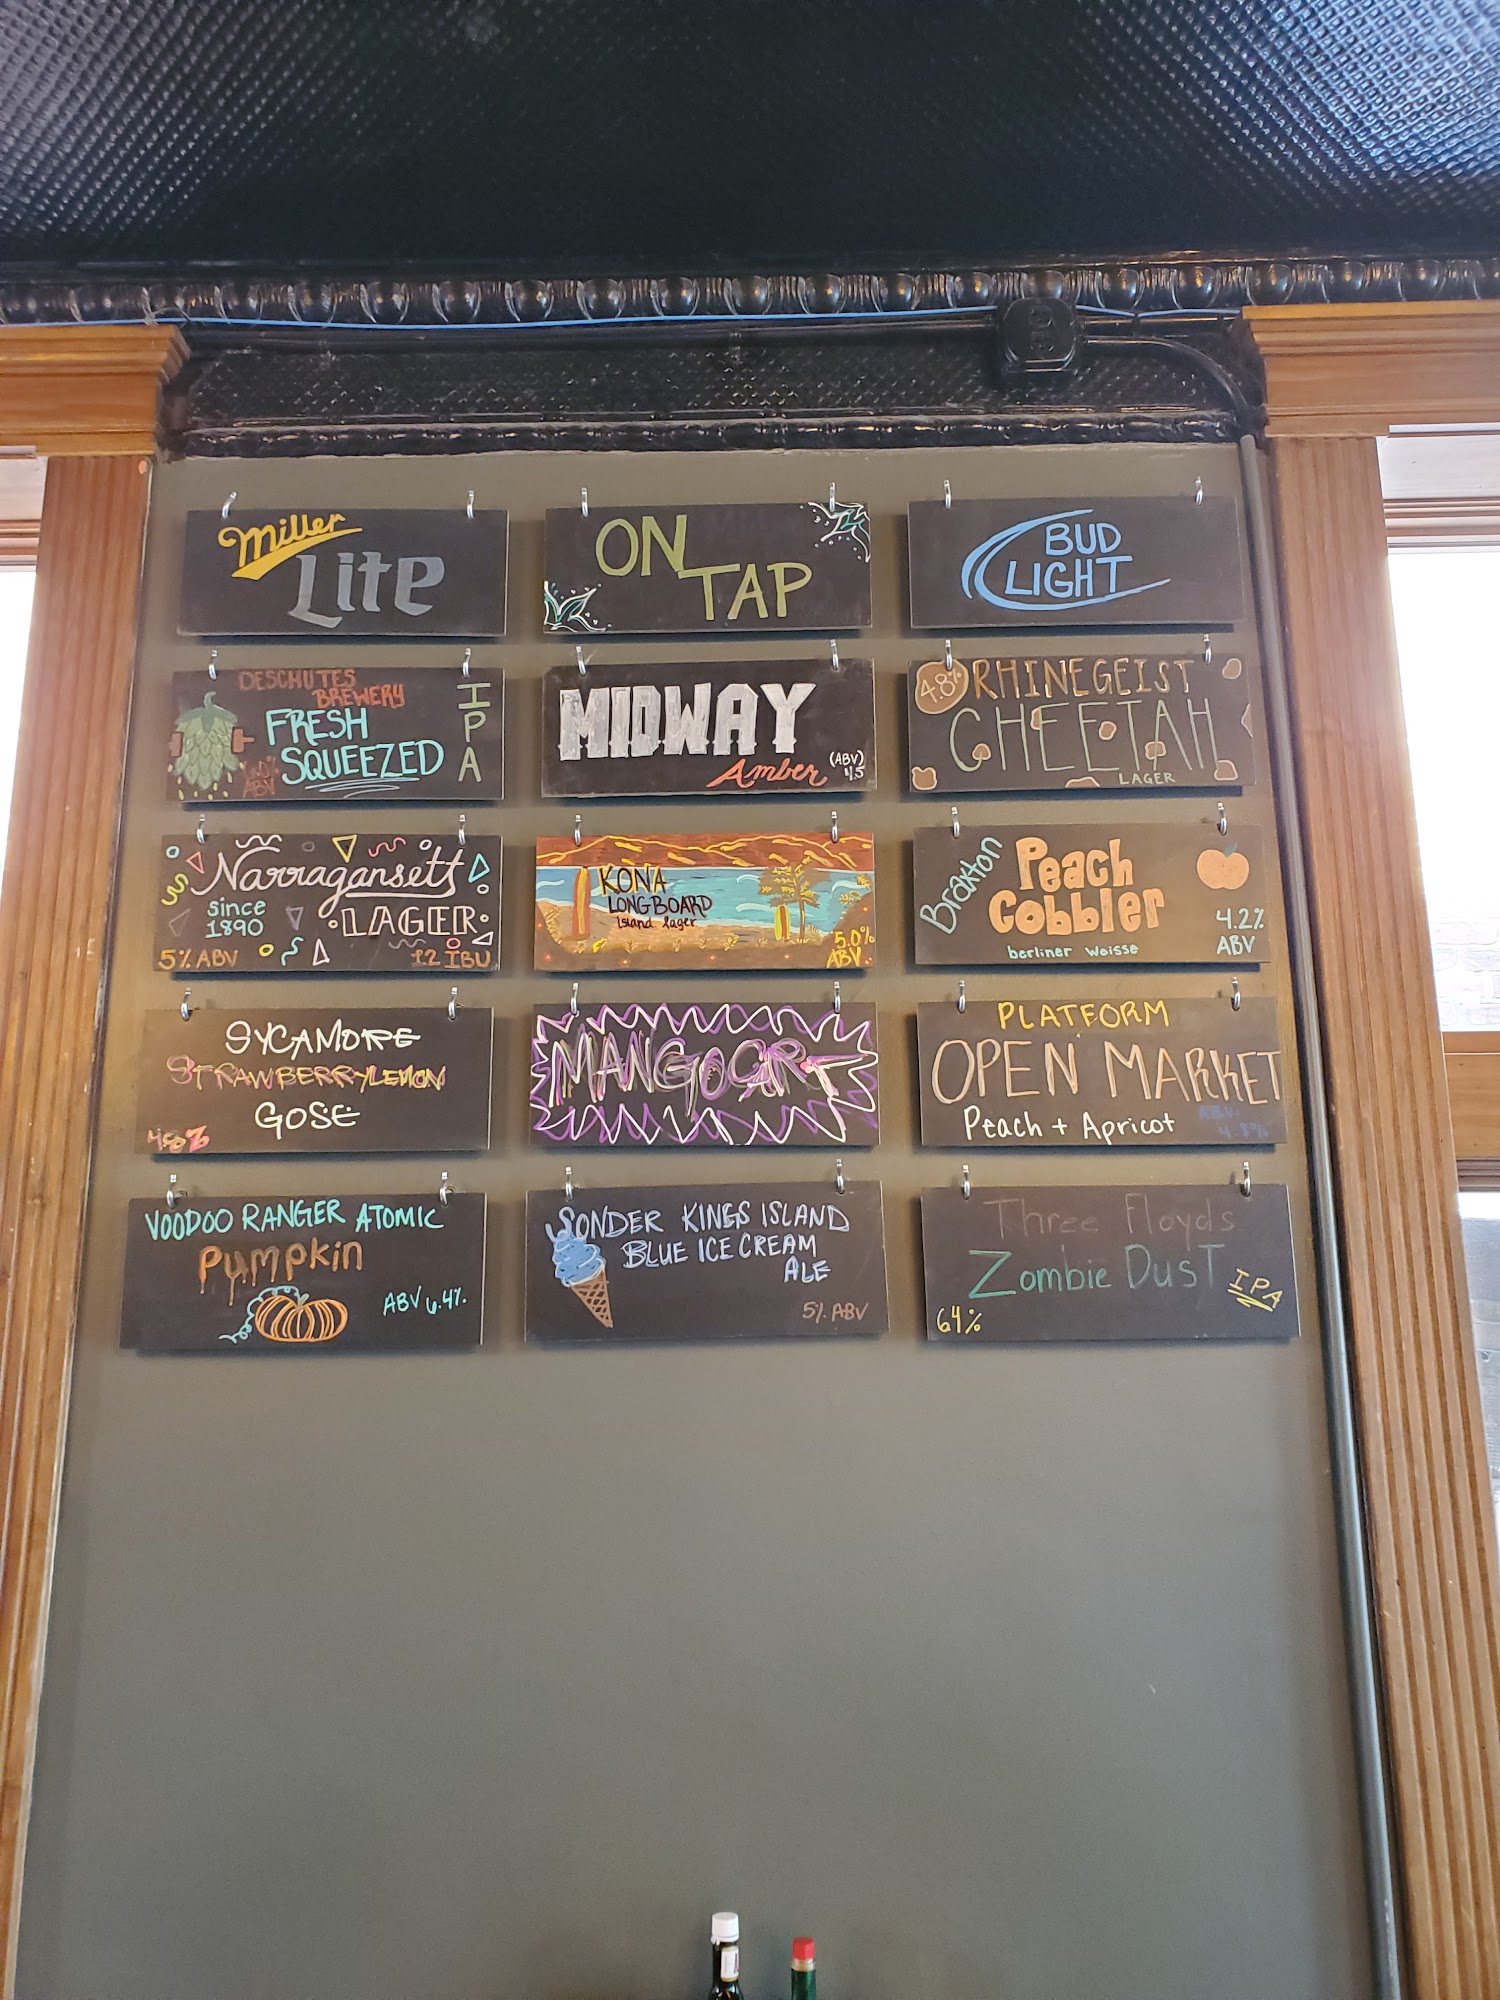 Miller
Lite
ON
TAP
BUD
LIGHT
DESCHUTES
BREWERY
FRESH
SQUEEZED
IPA
ABV
MIDWAY
Amber
(ABV)
4.5
4.8%
RHINEGEIST
CHEETAH
LAGER
Narragansett
since
1890
LAGER
5% ABV
12 IBU
KONA
LONGBOARD
Island lager
5.0%
ABV
Braxton
Peach
Cobbler
berliner weisse
4.2%
ABV
SYCAMORE
STRAWBERRYLEMON
GOSE
4.8%
MANGOCART
PLATFORM
OPEN MARKET
Peach + Apricot
ABV:
4.8%
VOODOO RANGER ATOMIC
Pumpkin
ABV 6.4%
SONDER KINGS ISLAND
BLUE ICE CREAM
ALE
5% ABV
Three Floyds
Zombie Dust
IPA
64%